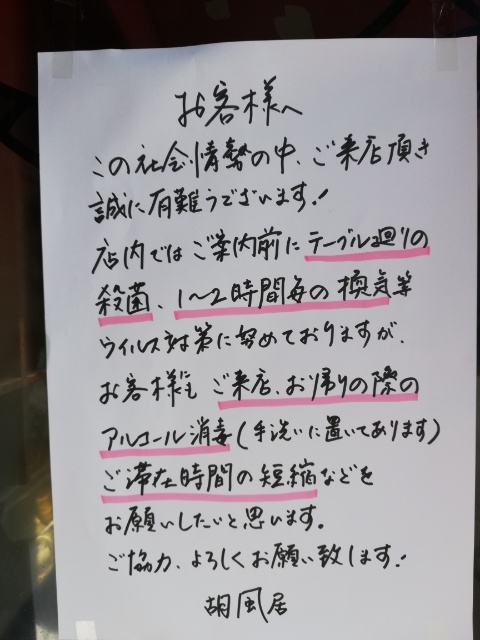 お客様へ
この社会情勢の中、ご来店頂き
誠に有難うございます!
店内ではご案内前にテーブル廻りの
殺菌、1〜2時間毎の換気等
ウイルス対策に努めておりますが、
お客様にも ご来店、お帰りの際の
アルコール消毒(手洗いに置いてあります)
ご滞在時間の短縮などを
お願いしたいと思います。
ご協力、よろしくお願い致します!
胡風居